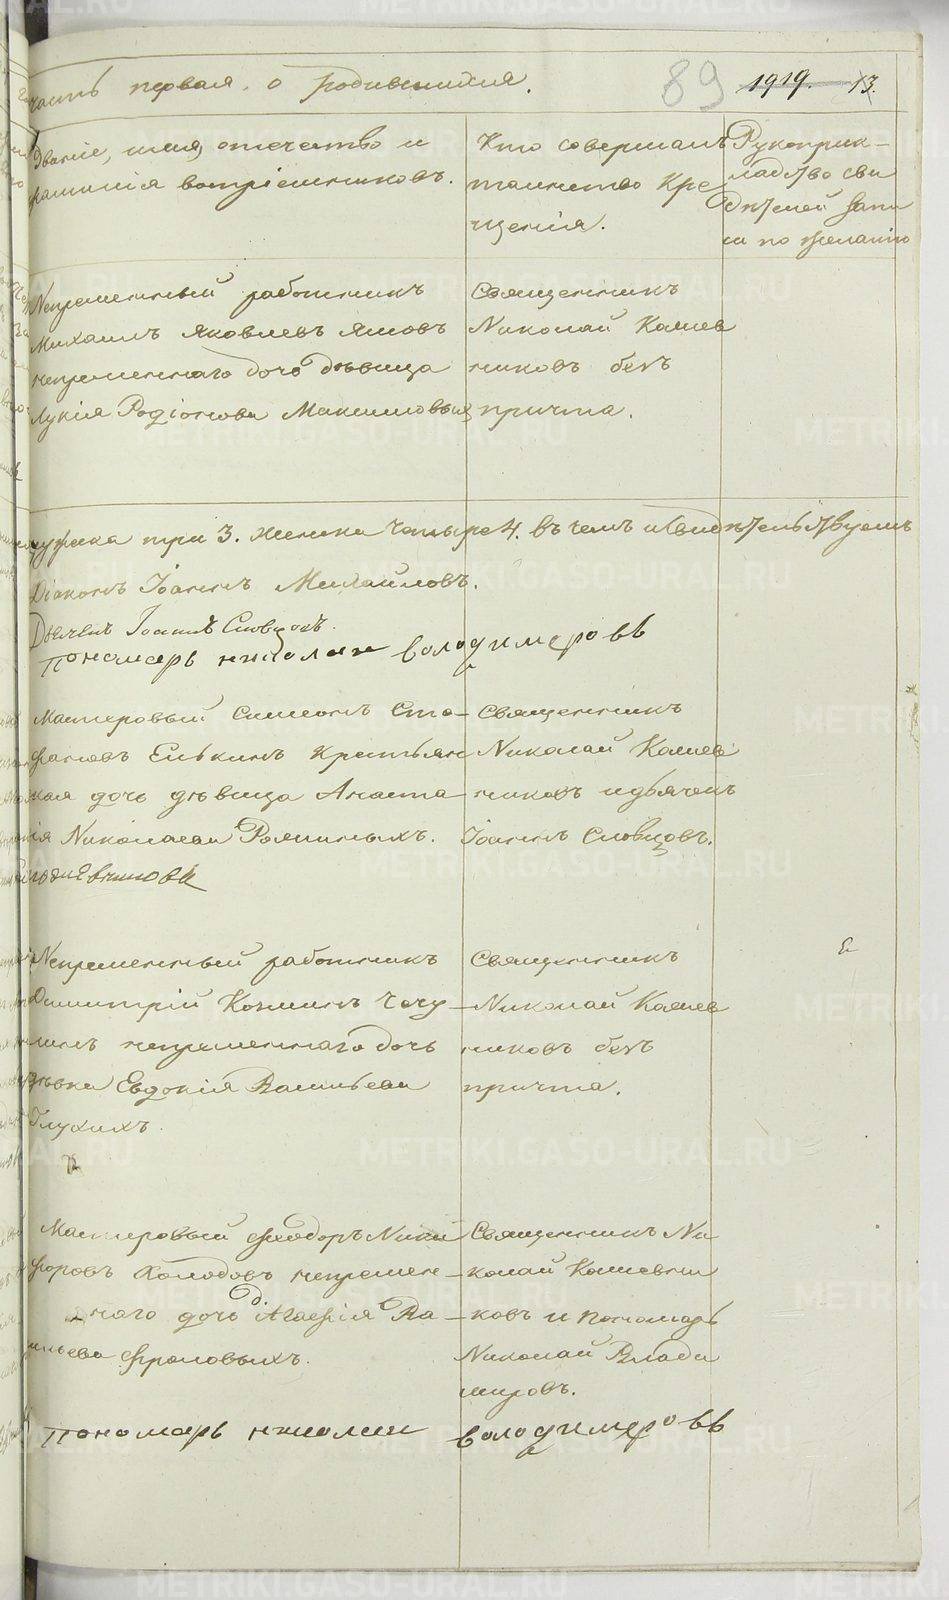 часть первая. о родившихся.
89 1919. 13.
Званіе, имя, отечество и
фамилія воспріемниковъ.
Кто совершалъ
таинство Кре
щенія.
Рукоприк-
ладство сви
дѣтелей запи
си по желанію
Непременный работникъ
Михаилъ Яковлевъ Ямовъ
непременнаго дочь девица
Лукія Родіонова Максимовыя
Священникъ
Николай Калиев
никовъ безъ
причта.
мужеска три 3. женска четыре 4. въ чемъ и свидѣтельствуемъ
Діаконъ Іоаннъ Михайловъ.
Дьячекъ Іоаннъ Словцовъ.
Пономарь николаи володимеровъ
Мастеровый Симеонъ Сте-
фановъ Елькинъ крестьян
ская дочь девица Анаста-
сія Николаева Ромниныхъ.
Священникъ
Николай Калиев
никовъ и дьячекъ
Іоаннъ Словцовъ.
Непременный работникъ
Димитрій Козминъ Чечу-
линъ непременнаго дочь
девка Евдокія Васильева
Глухихъ.
Священникъ
Николай Калиев
никовъ безъ
причта.
Мастеровый Феодоръ Ники
форовъ Холодовъ непремен-
наго дочь д. Агафія Ва-
сильева Фроловыхъ.
Священникъ Ни
колай Калиевни
ковъ и пономарь
Николай Влади
мировъ.
Пономарь николаи володимеровъ